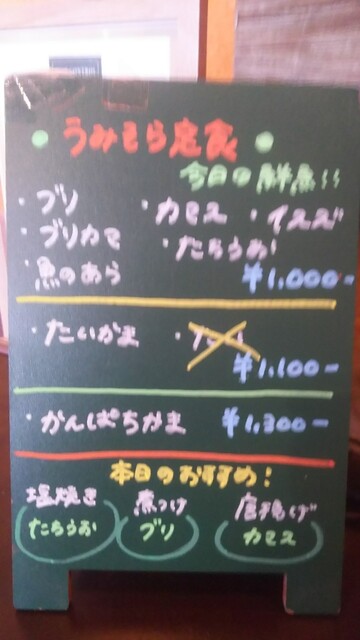 ・うみそら定食・
今日の鮮魚!!
・ブリ ・カマス ・イスズ
・ブリカマ ・たちうお
・魚のあら ¥1,000-
・たいかま
¥1,100-
・かんぱちかま ¥1,300-
本日のおすすめ!
塩焼き 煮つけ 唐揚げ
たちうお ブリ カマス